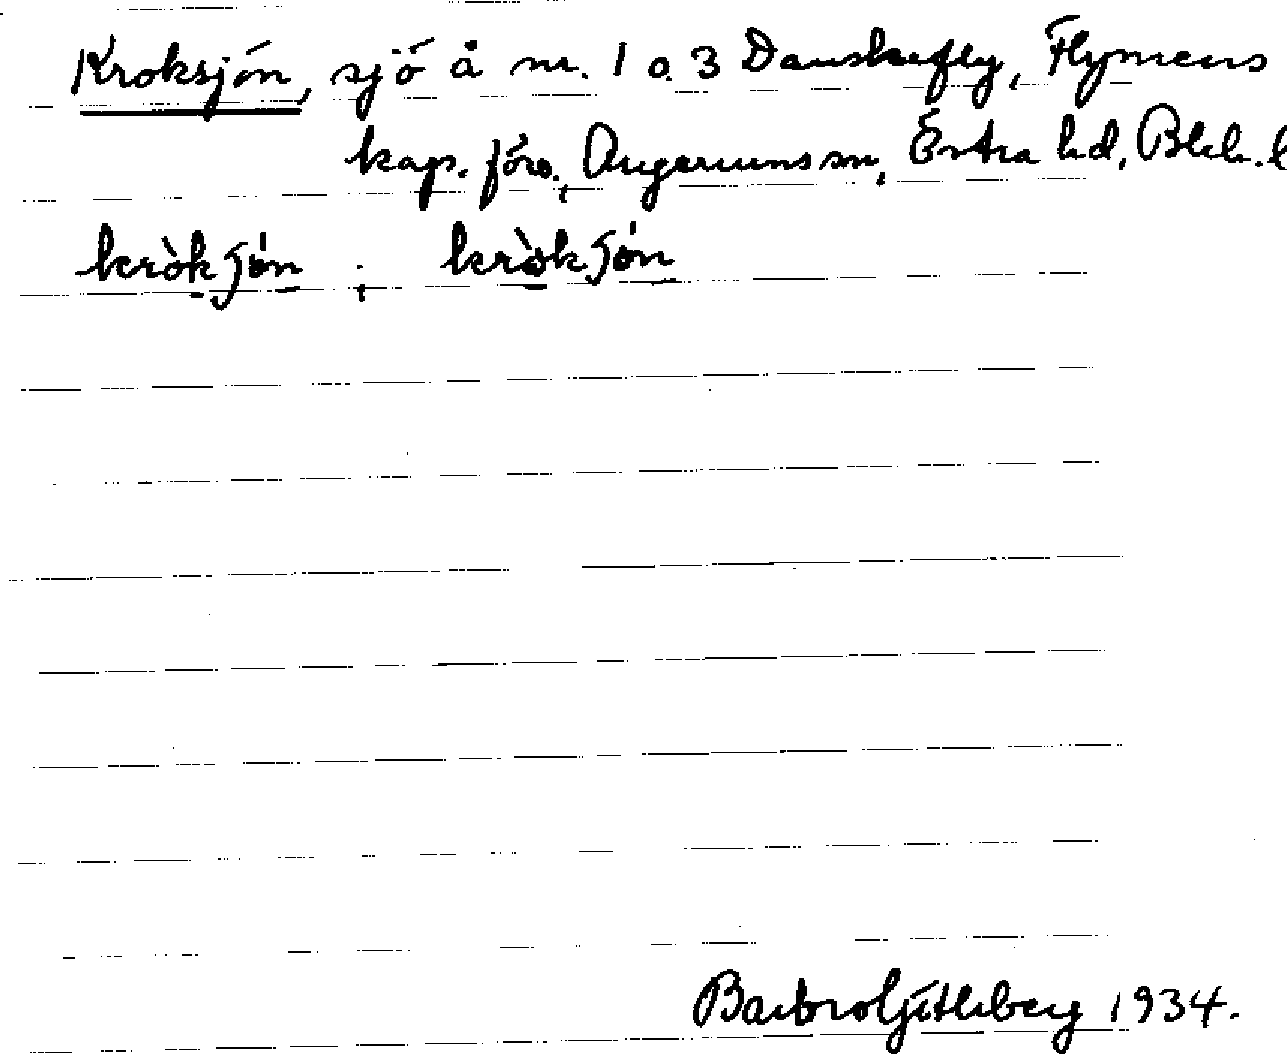 Kroksjön, sjö å nr. 1 o. 3 Danskefly, Flymens
kap. förs., Augerums sn, Östra hd, Blek. l
kròkʃön ; kròkʃön
Barbro Götherberg 1934.